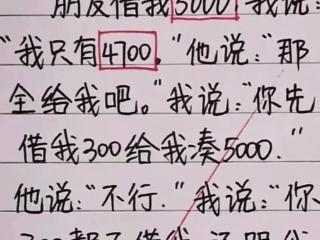 朋友借我5000，我说：
“我只有4700。”他说：“那
全给我吧。”我说：“你先
借我300给我凑5000.”
他说：“不行.”我说：“你
300都不借我,还跟我